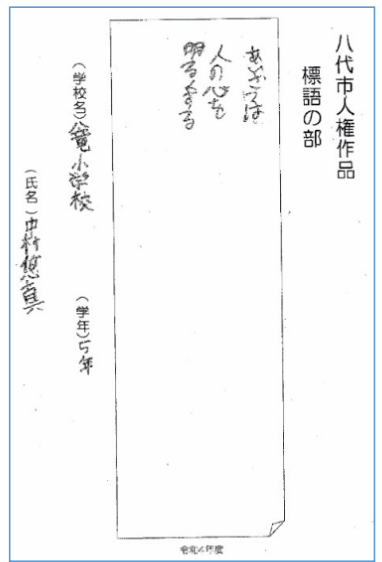 八代市人権作品
標語の部
あいさつは
人の心を
明るくする
(学校名)八竜小学校
(学年)5年
(氏名)中村悠真
令和4年度